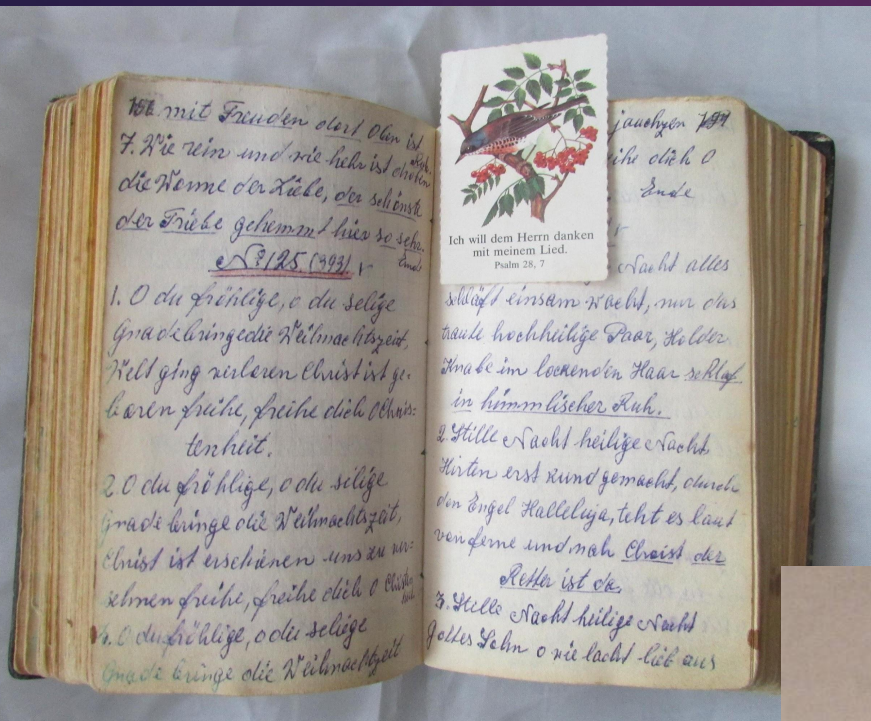 156. mit Freuden dort Oben ist
7. Wie rein und wie hehr ist droben
die Wonne der Liebe, der schönste
der Triebe gehemmt hier so sehr.
Ende
No 125 (393)
1. O du fröhlige, o du selige
Gnadebringedie Weihnachtszeit,
Welt ging verloren Christ ist ge-
boren freihe, freihe dich O Chris=
tenheit.
2. O du fröhlige, o du silige
Gnade bringe die Weihnachtszeit,
Christ ist erschienen uns zu ver=
sehnen freihe, freihe dich O Christen
3. O du fröhlige, o du seliege
Gnade bringe die Weihnachtzeit
Ich will dem Herrn danken
mit meinem Lied.
Psalm 28, 7
jauchzen
ihe dich O
Ende
Nacht alles
schläft einsam wacht, nur das
traute hochheilige Paar, Holder
Knabe im lockenden Haar schlaf
in himmlischer Ruh.
2. Stille Nacht heilige Nacht,
Hirten erst kund gemacht, durch
den Engel Halleluja, teht es laut
von ferne und nah Christ der
Retter ist da,
3. Stille Nacht heilige Nacht
Gottes Sohn o wie lacht lieb aus